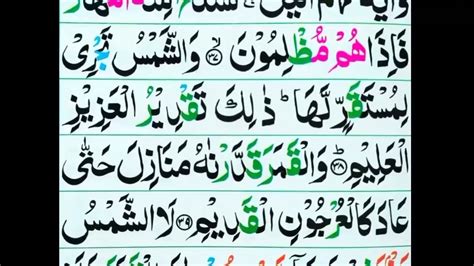 وَاٰيَةٌ لَّهُمُ الَّيْلُ ۚ نَسْلَخُ مِنْهُ النَّهَارَ
فَاِذَا هُمْ مُّظْلِمُوْنَ ۙ﴿۳۷﴾ وَالشَّمْسُ تَجْرِىْ
لِمُسْتَقَرٍّ لَّهَا ؕ ذٰ لِكَ تَقْدِيْرُ الْعَزِيْزِ
الْعَلِيْمِ ؕ﴿۳۸﴾ وَالْقَمَرَ قَدَّرْنٰهُ مَنَازِلَ حَتّٰى
عَادَ كَالْعُرْجُوْنِ الْقَدِيْمِ ﴿۳۹﴾ لَا الشَّمْسُ